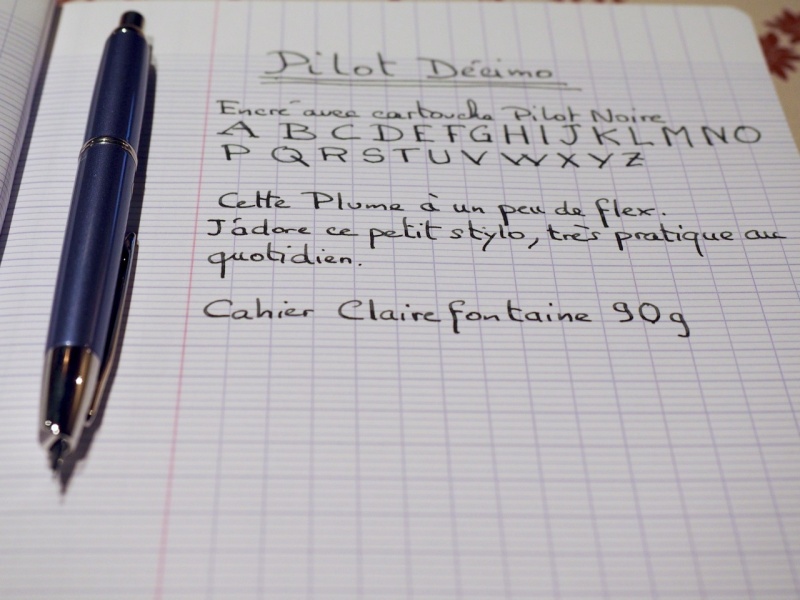 Pilot Décimo
Encré avec cartouche Pilot Noire
A B C D E F G H I J K L M N O
P Q R S T U V W X Y Z
Cette Plume à un peu de flex.
J'adore ce petit stylo, très pratique au
quotidien.
Cahier Clairefontaine 90g